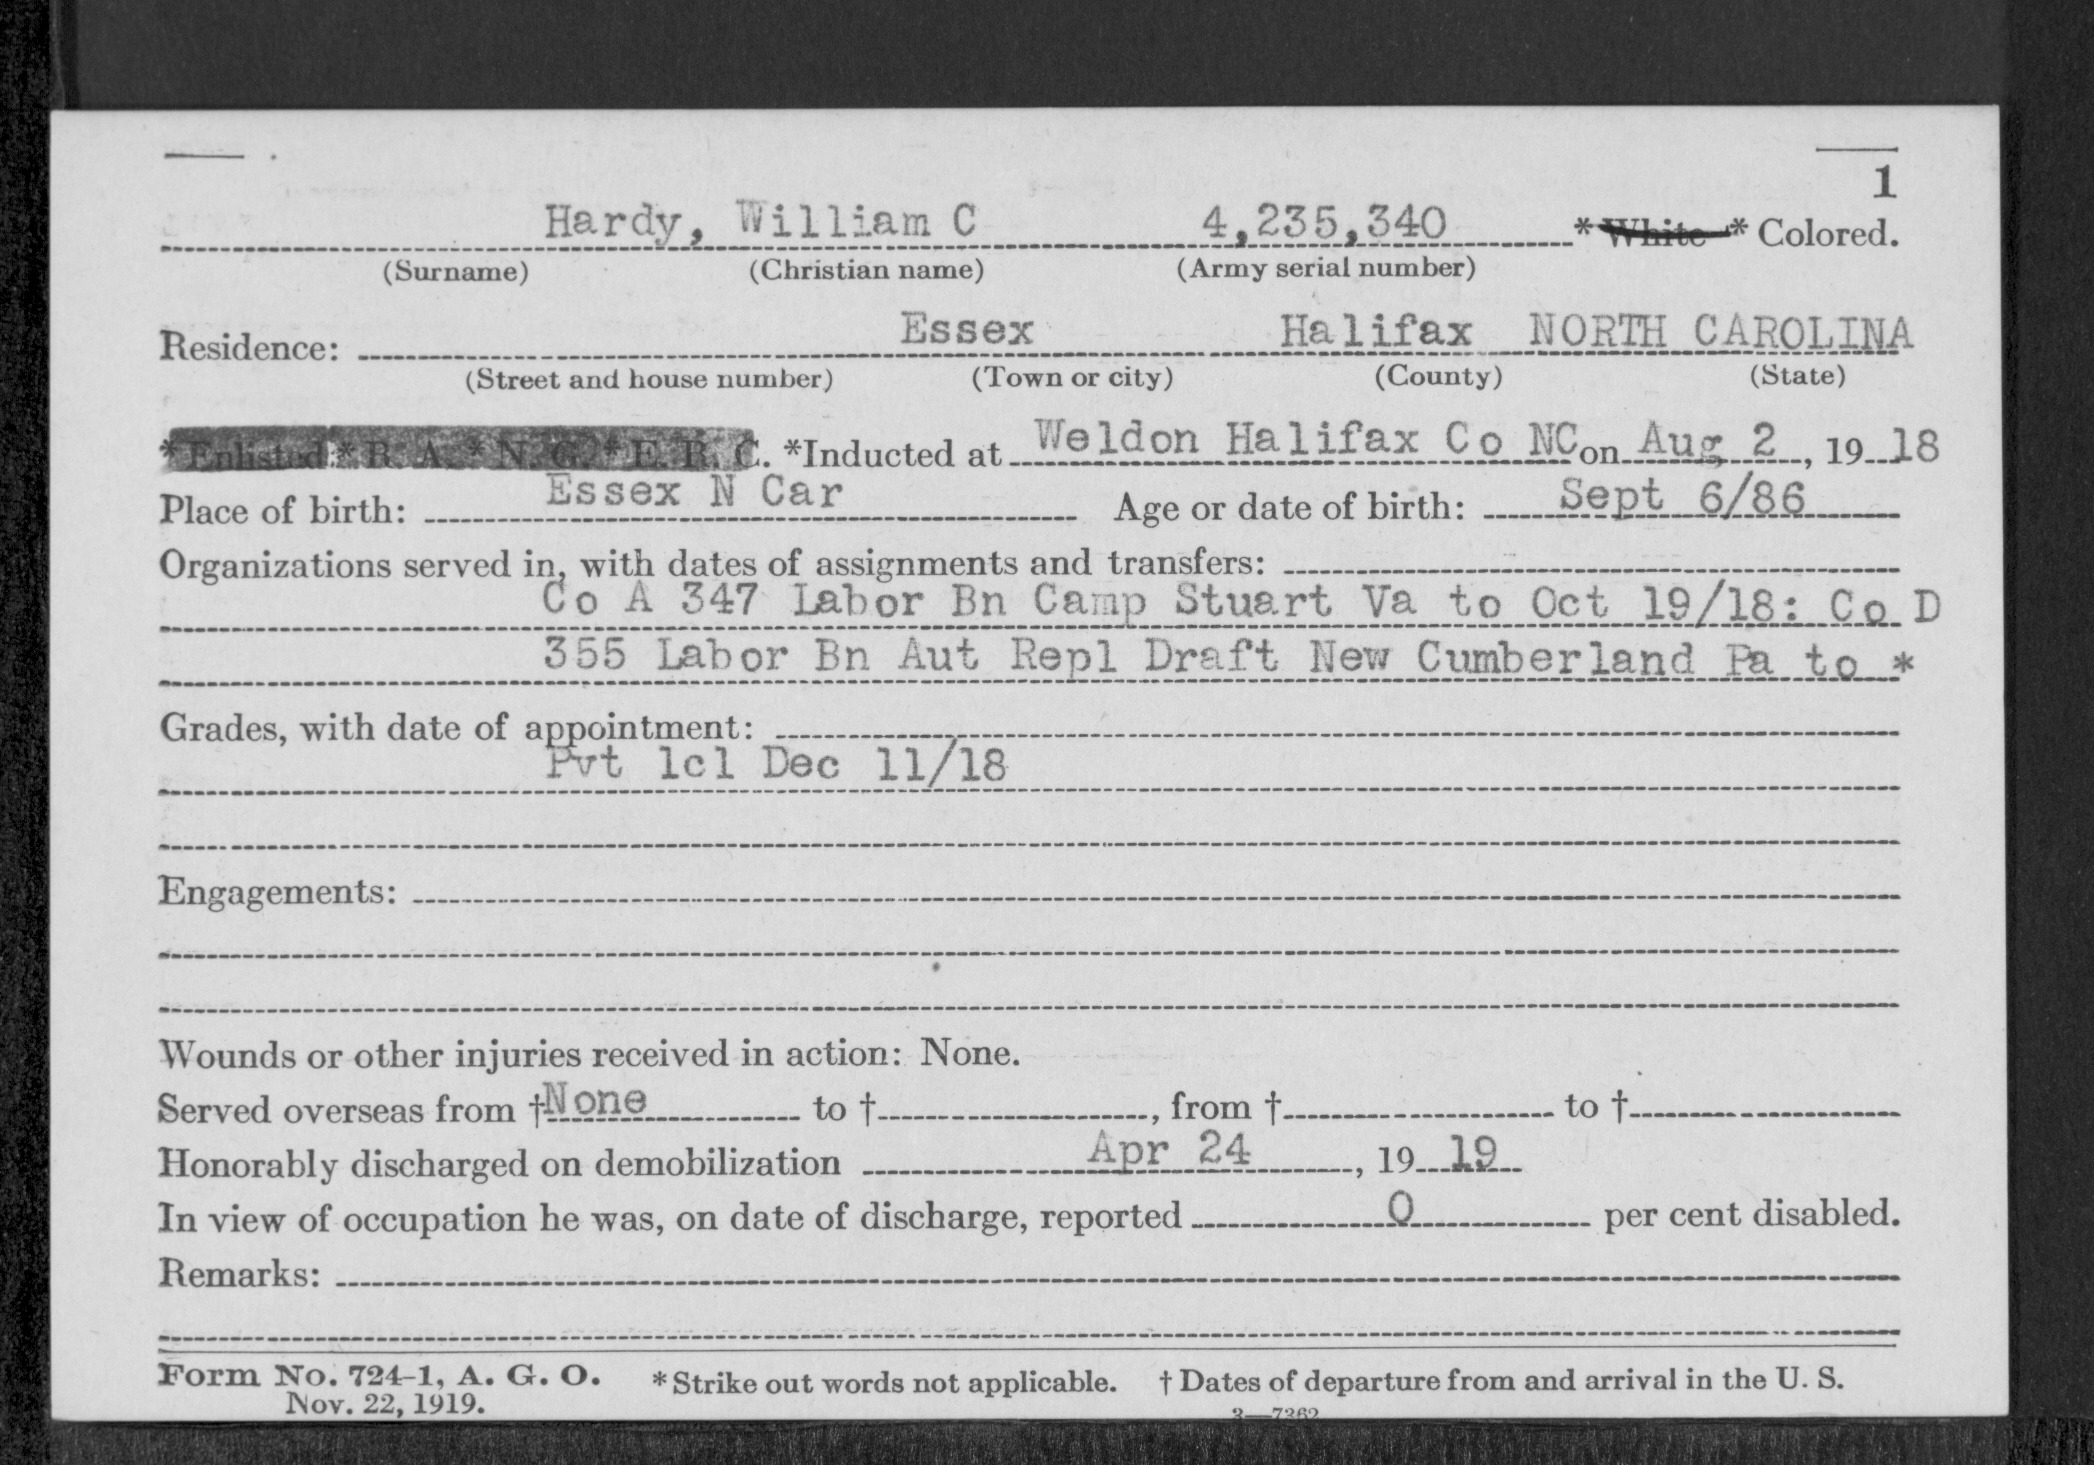 1
Hardy, William C 4,235,340 * White * Colored.
(Surname) (Christian name) (Army serial number)
Residence: Essex Halifax NORTH CAROLINA
(Street and house number) (Town or city) (County) (State)
*Enlisted: * R. A. * N. G. * E. R. C. *Inducted at Weldon Halifax Co NC on Aug 2, 19 18
Place of birth: Essex N Car Age or date of birth: Sept 6/86
Organizations served in, with dates of assignments and transfers:
Co A 347 Labor Bn Camp Stuart Va to Oct 19/18: Co D
355 Labor Bn Aut Repl Draft New Cumberland Pa to *
Grades, with date of appointment:
Pvt 1cl Dec 11/18
Engagements:
Wounds or other injuries received in action: None.
Served overseas from †None to †, from † to †
Honorably discharged on demobilization Apr 24, 19 19
In view of occupation he was, on date of discharge, reported 0 per cent disabled.
Remarks:
Form No. 724-1, A. G. O. * Strike out words not applicable. † Dates of departure from and arrival in the U. S.
Nov. 22, 1919. 3—7362